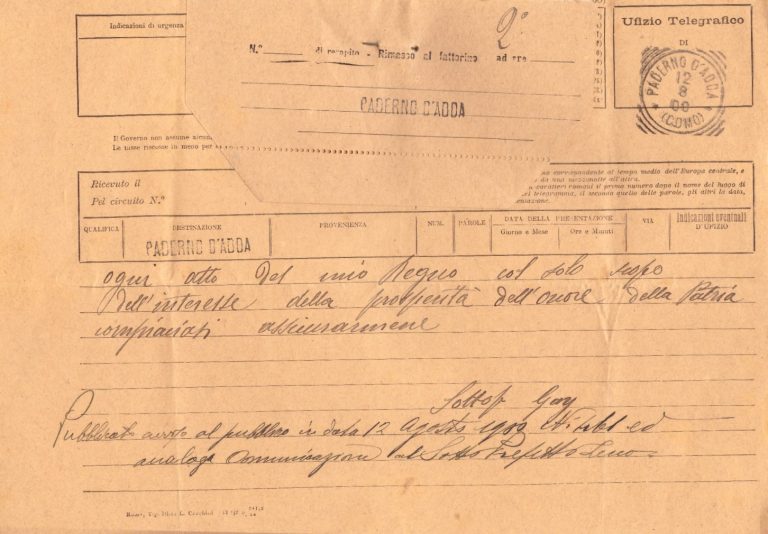 Indicazioni di urgenza
2°
N.° di recapito - Rimesso al fattorino ad ore
PADERNO D'ADDA
Ufizio Telegrafico
DI
PADERNO D'ADDA
12
8
00
(COMO)
Il Governo non assume alcuna
Le tasse riscosse in meno per
corrispondente al tempo medio dell'Europa centrale, e
da una mezzanotte all'altra.
caratteri romani il primo numero dopo il nome del luogo di
telegramma, il secondo quello delle parole, gli altri la data,
Ricevuto il
Pel circuito N.°
QUALIFICA
DESTINAZIONE
PROVENIENZA
NUM.
PAROLE
DATA DELLA PRESENTAZIONE
Giorno e Mese
Ore e Minuti
VIA
Indicazioni eventuali
D'UFIZIO
PADERNO D'ADDA
ogni atto del mio Regno col solo scopo
dell'interesse della prosperità dell'onore della Patria
compiaciati assicurarmene
Sottop Gay
Pubblicato avviso al pubblico in data 12 Agosto 1900 ed
analoga Comunicazione al Sotto Prefetto Lecco